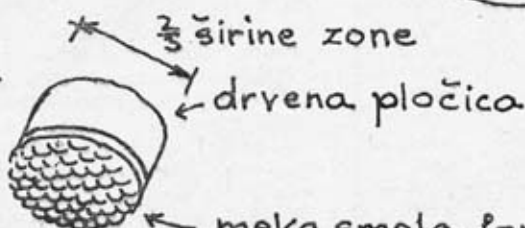 ⅖ širine zone
drvena pločica
meka smola